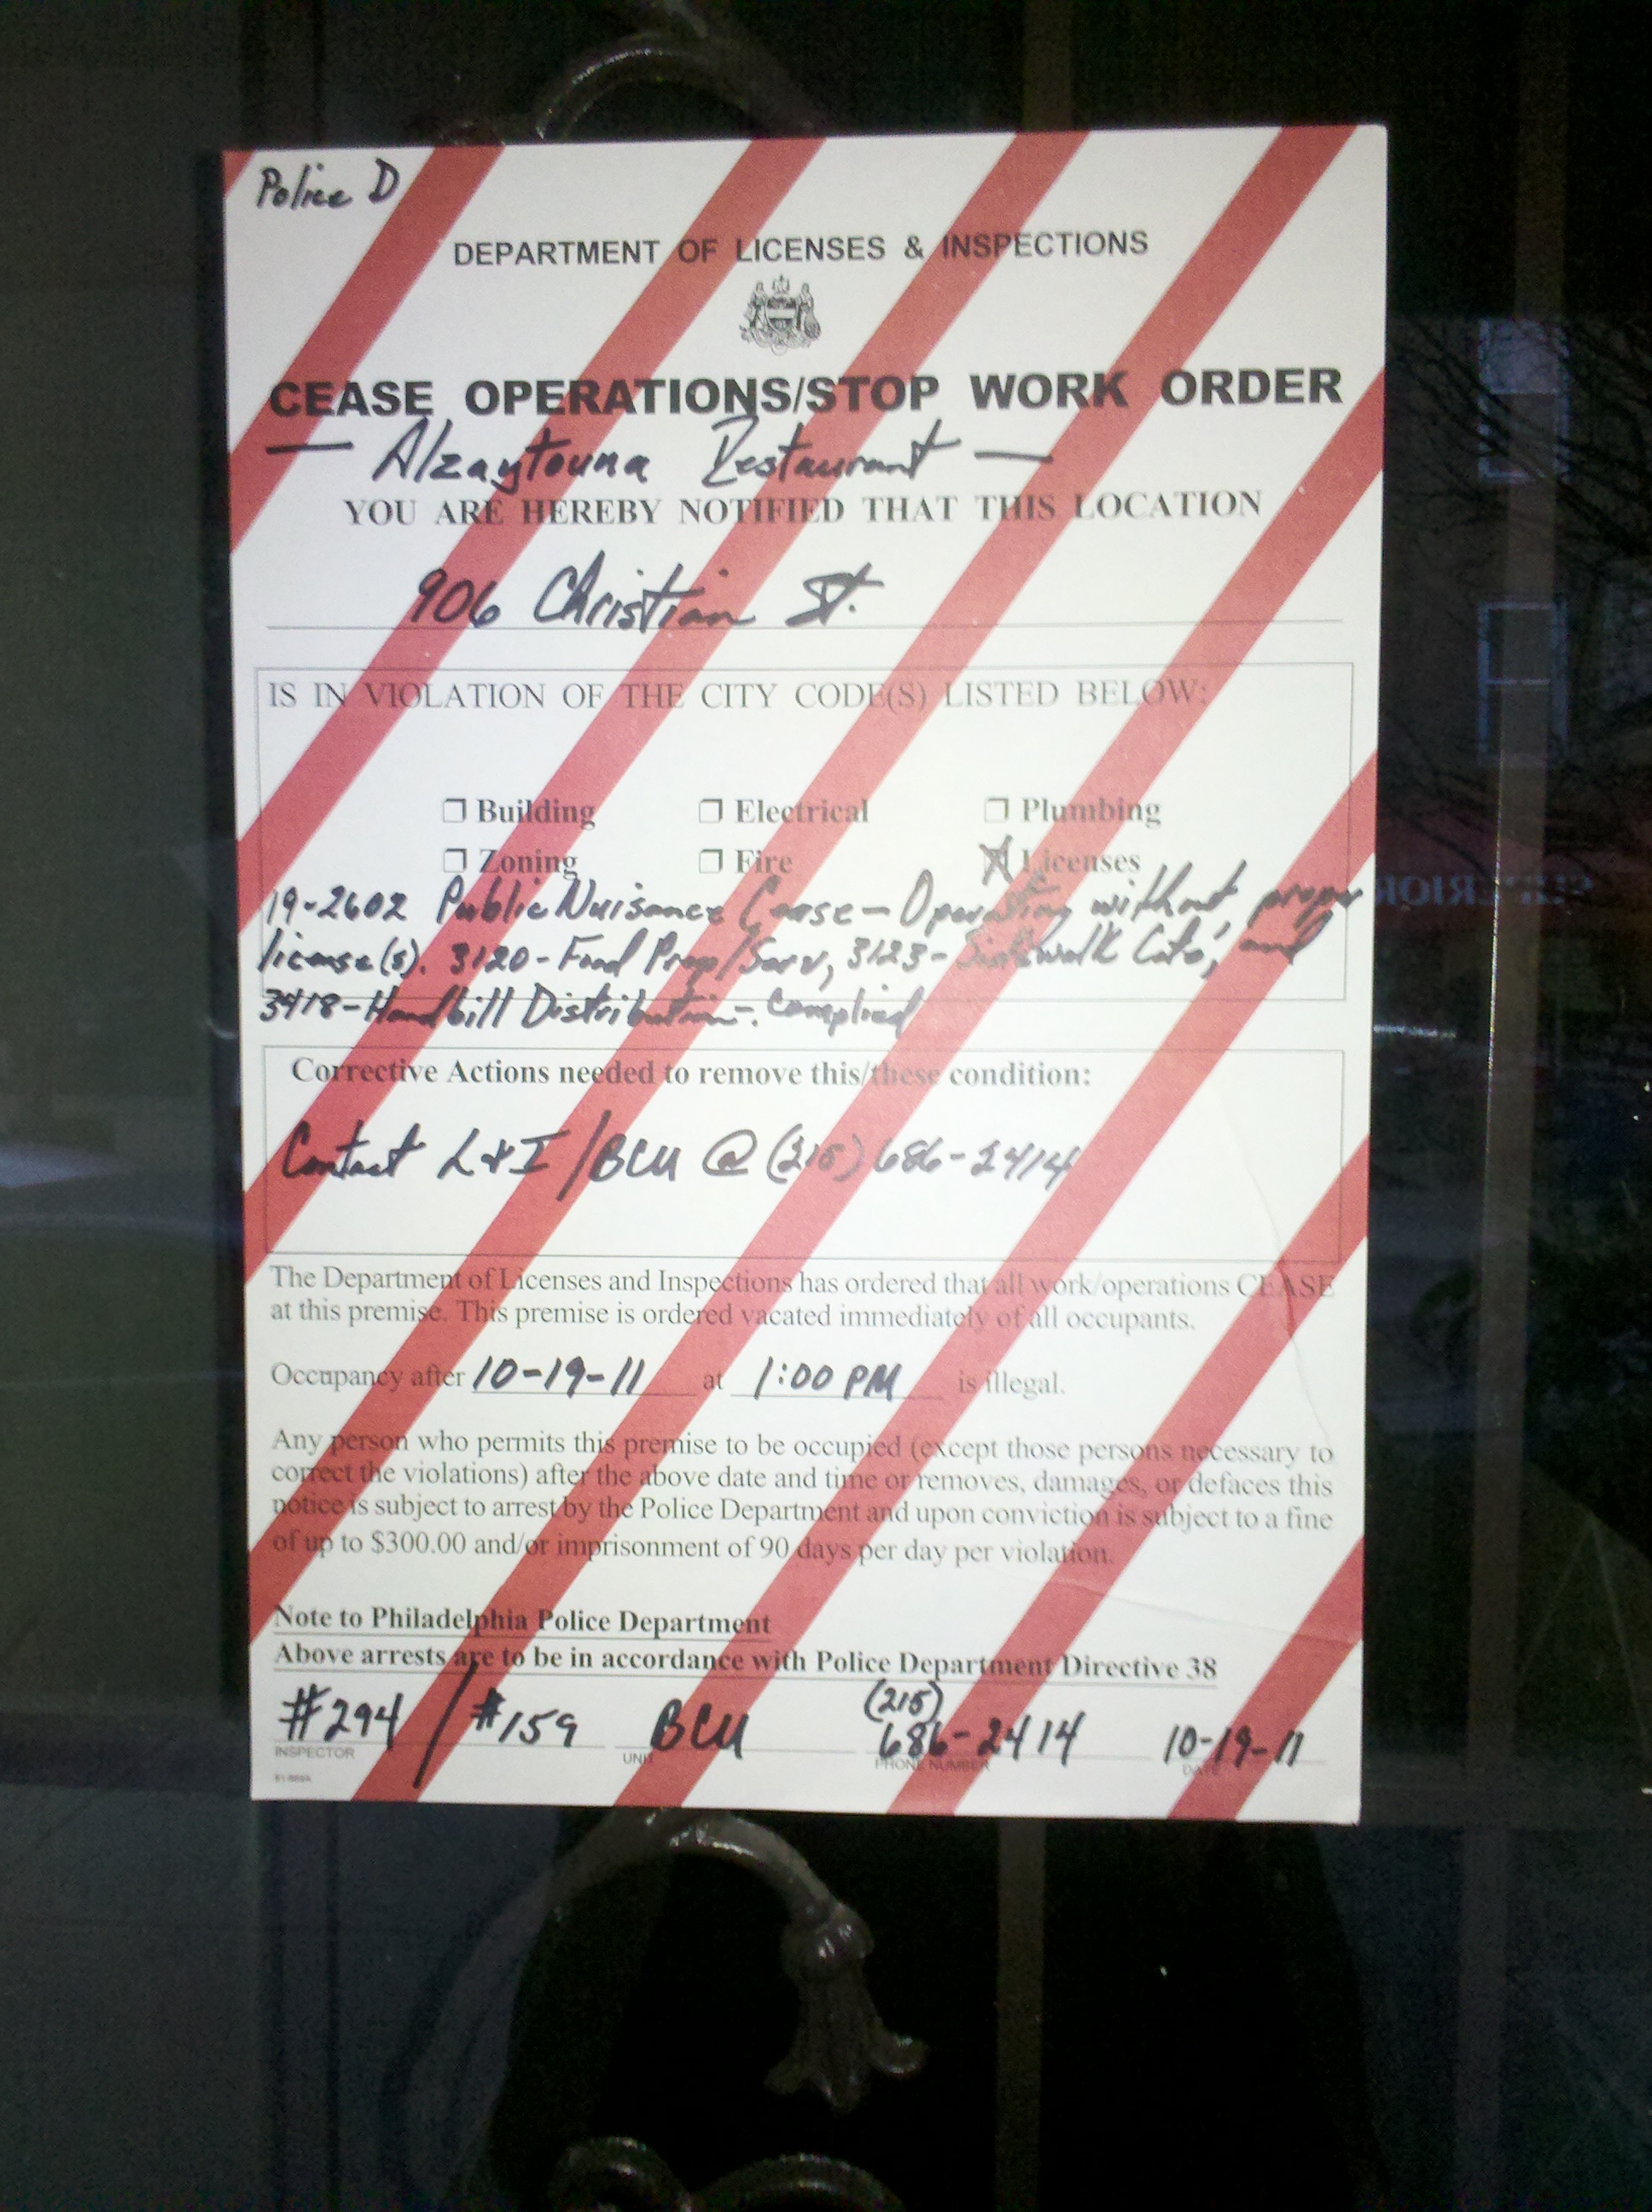 Police D
DEPARTMENT OF LICENSES & INSPECTIONS
CEASE OPERATIONS/STOP WORK ORDER
— Alzaytouna Restaurant —
YOU ARE HEREBY NOTIFIED THAT THIS LOCATION
906 Christian St.
IS IN VIOLATION OF THE CITY CODE(S) LISTED BELOW:
Building Electrical Plumbing
Zoning Fire Licenses
19-2602 Public Nuisance Cease - Operating without proper
license(s). 3120 - Food Prep/Serv, 3123 - Sidewalk Cafe, and
3418 - Handbill Distribution. Complied
Corrective Actions needed to remove this/these condition:
Contact L&I/BCU @ (215) 686-2414
The Department of Licenses and Inspections has ordered that all work/operations CEASE
at this premise. This premise is ordered vacated immediately of all occupants.
Occupancy after 10-19-11 at 1:00 PM is illegal.
Any person who permits this premise to be occupied (except those persons necessary to
correct the violations) after the above date and time or removes, damages, or defaces this
notice is subject to arrest by the Police Department and upon conviction is subject to a fine
of up to $300.00 and/or imprisonment of 90 days per day per violation.
Note to Philadelphia Police Department
Above arrests are to be in accordance with Police Department Directive 38
(215)
#294 / #159 BCU 686-2414 10-19-11
INSPECTOR UNIT PHONE NUMBER DATE